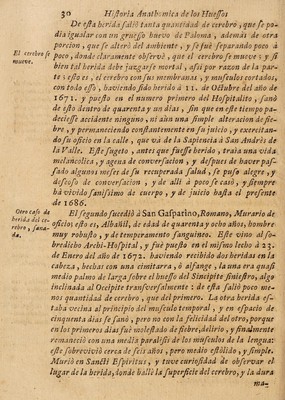 30 Historia Anathomica de los Huessos
De esta herida saliò tanta quantidad de cerebro, que se po-
dia igualar con un gruesso huevo de Paloma, ademàs de otra
porcion, que se alterò del ambiente, y se fuè separando poco à
El cerebro se
mueve.
poco, donde claramente observè, que el cerebro se mueve; y si
bien tal herida debe juzgarse mortal, assi por razon de la par-
te; esto es, el cerebro con sus membranas, y musculos cortados,
con todo esso, haviendo sido herido à 11. de Octubre del año de
1671. y puesto en el numero primero del Hospitalito, sanò
de esto dentro de quarenta y un dias, sin que en este tiempo pa-
deciesse accidente ninguno, ni aùn una simple alteracion de fie-
bre, y permaneciendo constantemente en su juicio, y exercitan-
do su oficio en la calle, que và de la Sapiencia à San Andrès de
la Valle. Este sugeto, antes que fuesse herido, traìa una vida
melancolica, y agena de conversacion, y despues de haver pas-
sado algunos meses de su recuperada salud, se puso alegre, y
deseoso de conversacion, y de allì à poco se casò, y siempre
hà vivido sanissimo de cuerpo, y de juicio hasta el presente
de 1686.
Otro caso de
herida del ce-
rebro, sana-
da.
El segundo sucediò à San Gasparino, Romano, Murario de
oficio; esto es, Albañil, de edad de quarenta y ocho años, hombre
muy robusto, y de temperamento sanguineo. Este vino al so-
bredicho Archi-Hospital, y fuè puesto en el mismo lecho à 23.
de Enero del año de 1672. haviendo recibido dos heridas en la
cabeza, hechas con una cimitarra, ò alfange, la una era quasi
medio palmo de larga sobre el huesso del Sincipite siniestro, algo
inclinada al Occipite transversalmente: de esta saliò poco me-
nos quantidad de cerebro, que del primero. La otra herida es-
taba vecina al principio del musculo temporal, y en espacio de
cinquenta dias se sanò, pero no con la felicidad del otro, porque
en los primeros dias fuè molestado de fiebre, delirio, y finalmente
remaneciò con una media paralisis de los musculos de la lengua:
este sobreviviò cerca de seis años, pero medio estòlido, y simple.
Muriò en Sancti Espiritus, y tuve curiosidad de observar el
lugar de la herida, donde hallè la superficie del cerebro, y la dura
ma-